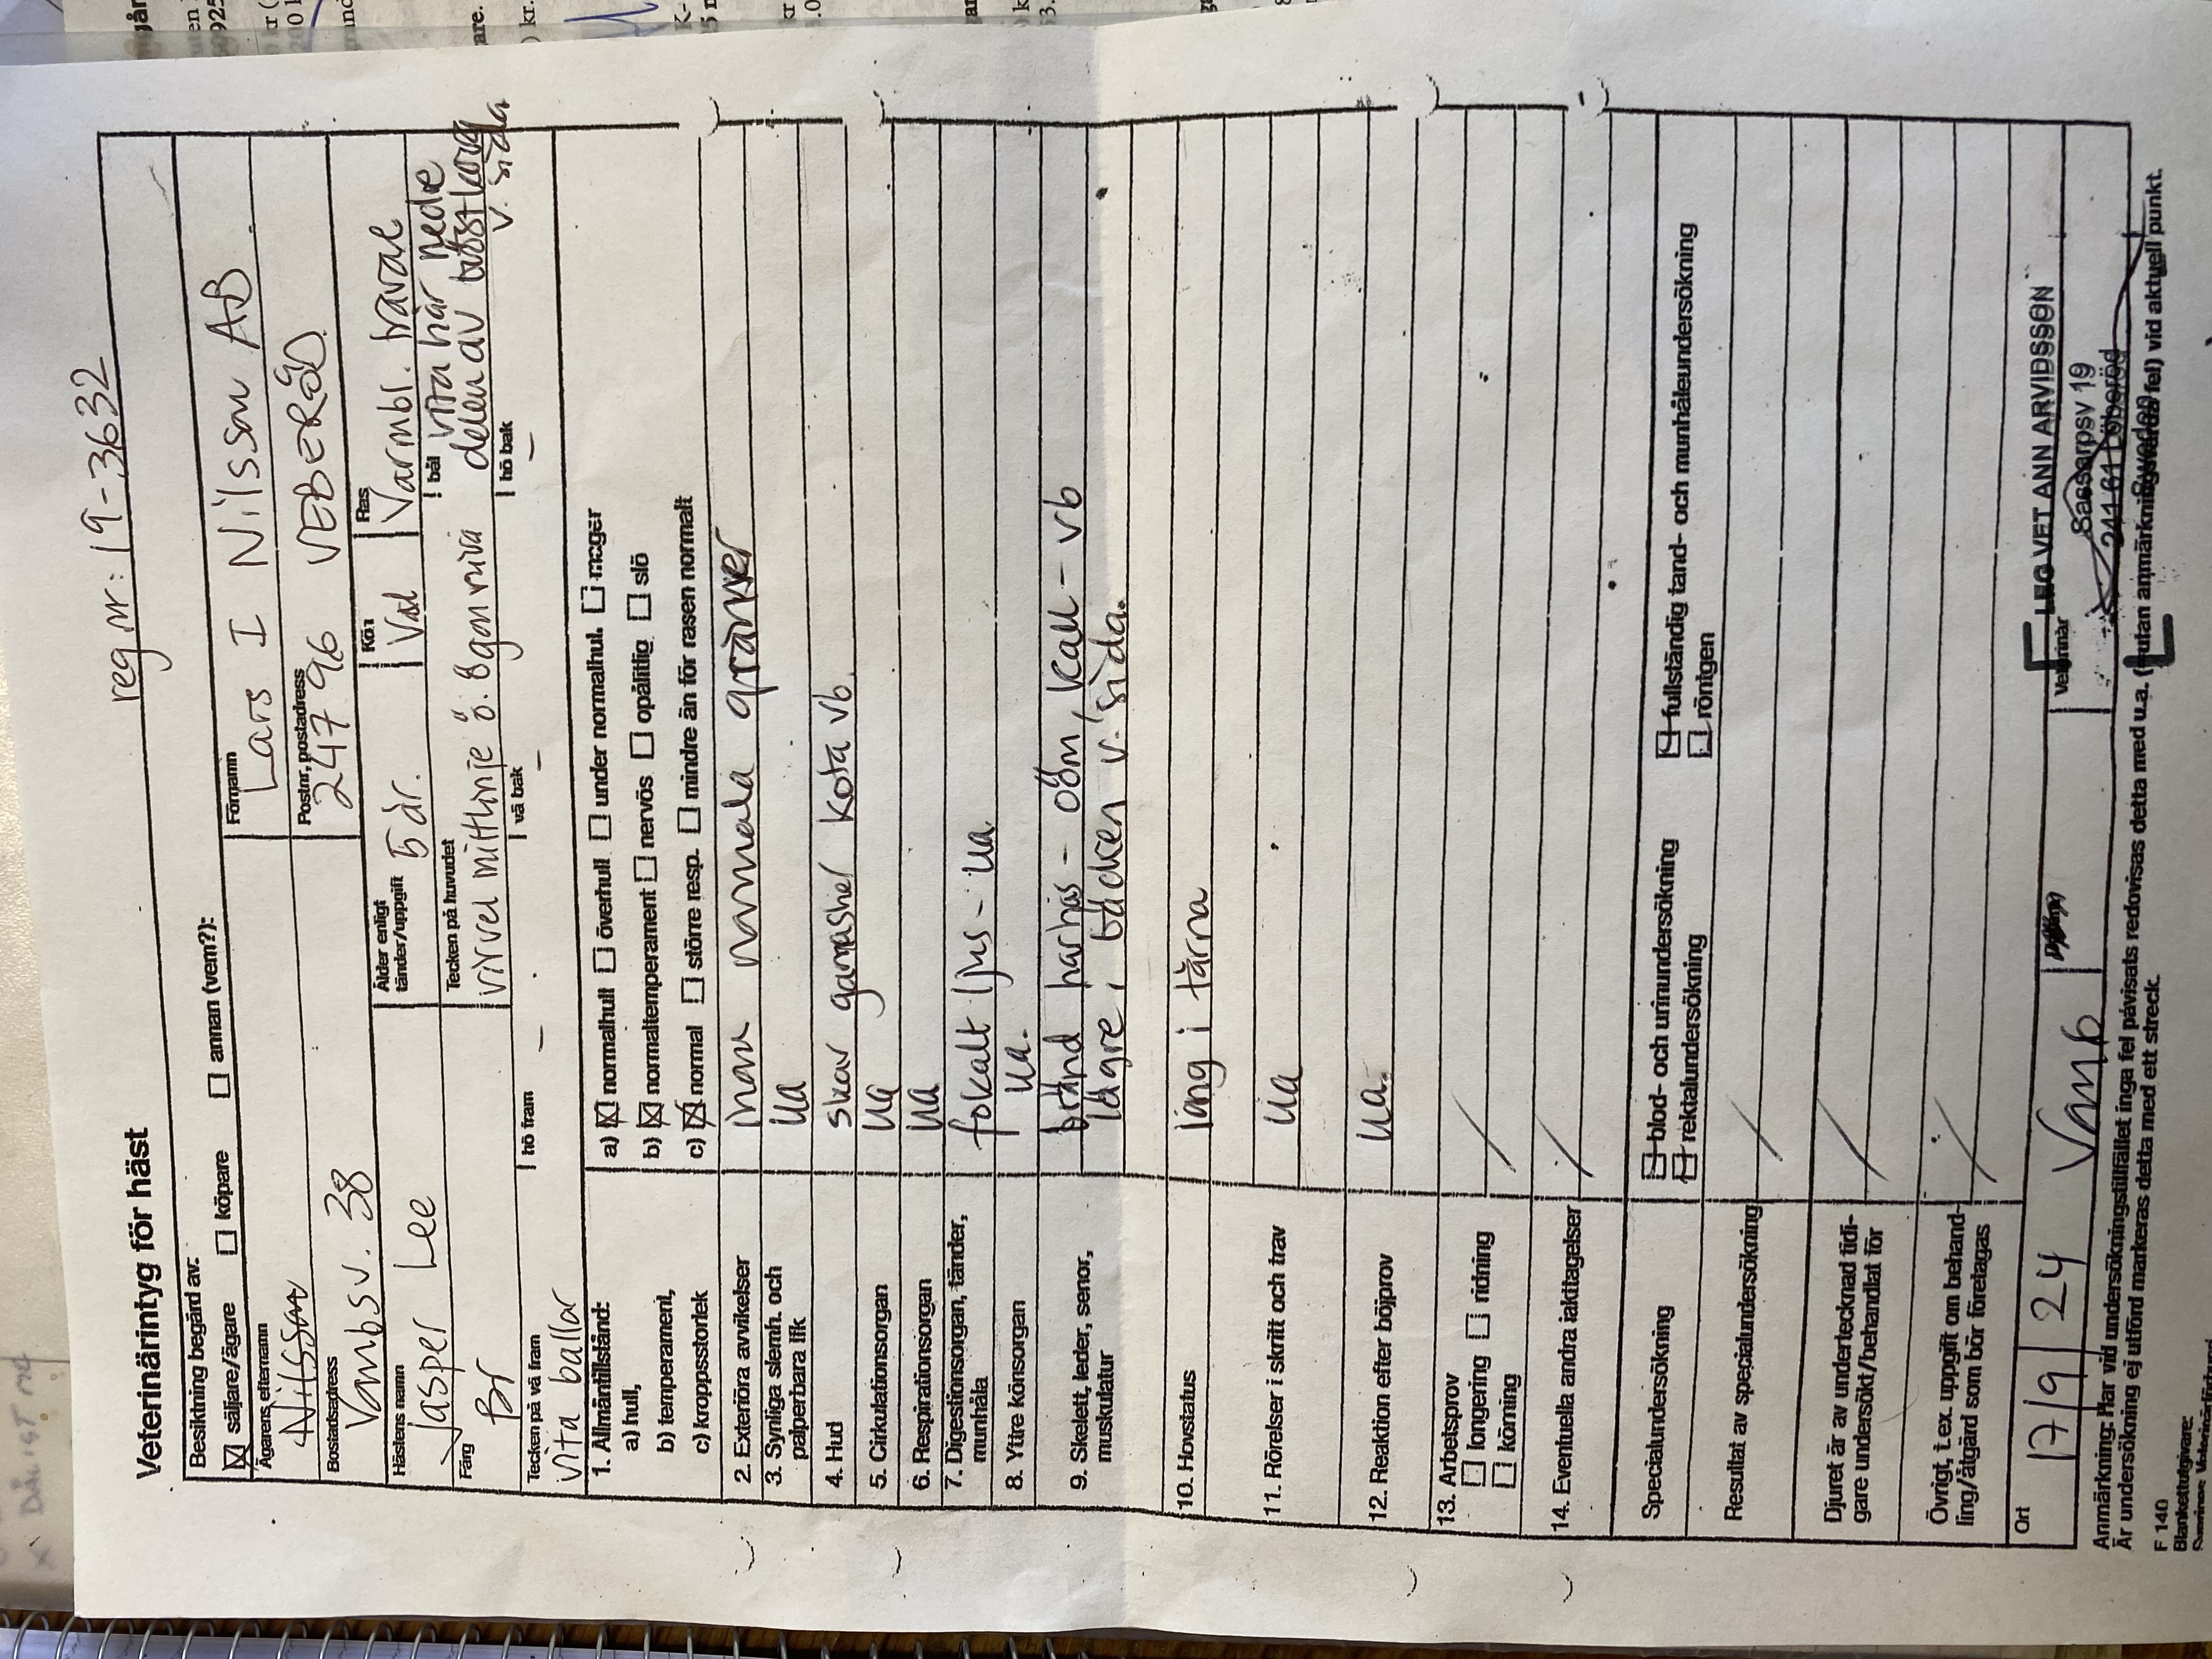 reg nr: 19-3632
Veterinärintyg för häst
Besiktning begärd av:
☒ säljare/ägare ☐ köpare ☐ annan (vem?):
Ägarens efternamn Förnamn
Nilsson Lars I Nilsson AB
Bostadsadress Postnr, postadress
Vambsv. 38 247 96 VEBERÖD
Hästens namn Ålder enligt tänder/uppgift Kön Ras
Jasper Lee 5 år. Val Varmbl. travare
Färg Tecken på huvudet bål
Br virvel mittlinje ö. ögonnivå vita hår nedre
delen av bröstkorg
v. sida
Tecken på vä fram hö fram vä bak hö bak
vita ballar – – –
1. Allmäntillstånd:
a) hull, a) ☒ normalhull ☐ överhull ☐ under normalhul. ☐ mager
b) temperament, b) ☒ normaltemperament ☐ nervös ☐ opålitlig ☐ slö
c) kroppsstorlek c) ☒ normal ☐ större resp. ☐ mindre än för rasen normalt
2. Exteriöra avvikelser inom normala gränser
3. Synliga slemh. och ua
palperbara lfk
4. Hud skav gamasher kota vb.
5. Cirkulationsorgan ua
6. Respirationsorgan ua
7. Digestionsorgan, tänder, fokalt ljus - ua.
munhåla
8. Yttre könsorgan ua.
9. Skelett, leder, senor, bränd harhas - oöm, kall - vb
muskulatur lägre i bäcken v. sida.
10. Hovstatus lång i tårna
11. Rörelser i skritt och trav ua
12. Reaktion efter böjprov ua.
13. Arbetsprov
☐ longering ☐ ridning
☐ körning
14. Eventuella andra iakttagelser
Specialundersökning ☐ blod- och urinundersökning ☐ fullständig tand- och munhåleundersökning
☐ rektalundersökning ☐ röntgen
Resultat av specialundersökning
Djuret är av undertecknad tidi-
gare undersökt/behandlat för
Övrigt, t.ex. uppgift om behand-
ling/åtgärd som bör företagas
Ort Veterinär
17/9 24 Vamb
LEG VET ANN ARVIDSSON
Sassarpsv 19
241 61 Löberöd
Sweden
Anmärkning: Har vid undersökningstillfället inga fel påvisats redovisas detta med u.a. (=utan anmärkningsvärda fel) vid aktuell punkt.
Är undersökning ej utförd markeras detta med ett streck.
F 140
Blankettutgivare:
Sveriges Veterinärförbund